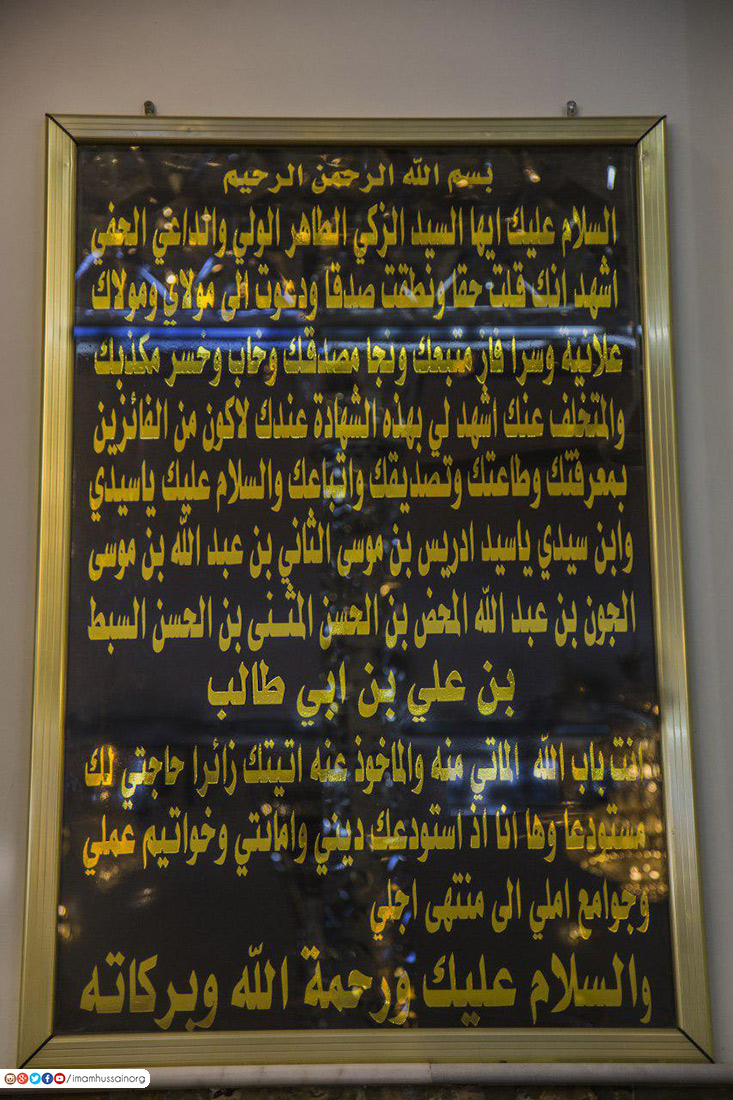 بسم الله الرحمن الرحيم
السلام عليك ايها السيد الزكي الطاهر الولي والداعي الحفي
اشهد انك قلت حقا ونطقت صدقا ودعوت الى مولاي ومولاك
علانية وسرا فاز متبعك ونجا مصدقك وخاب وخسر مكذبك
والمتخلف عنك اشهد لي بهذه الشهادة عندك لاكون من الفائزين
بمعرفتك وطاعتك وتصديقك واتباعك والسلام عليك ياسيدي
وابن سيدي ياسيد ادريس بن موسى الثاني بن عبد الله بن موسى
الجون بن عبد الله المحض بن الحسن المثنى بن الحسن السبط
بن علي بن ابي طالب
انت باب الله الماتي منه والماخوذ عنه اتيتك زائرا حاجتي لك
مستودعا وها انا اذ استودعك ديني وامانتي وخواتيم عملي
وجوامع املي الى منتهى اجلي
والسلام عليك ورحمة الله وبركاته
/imamhussainorg